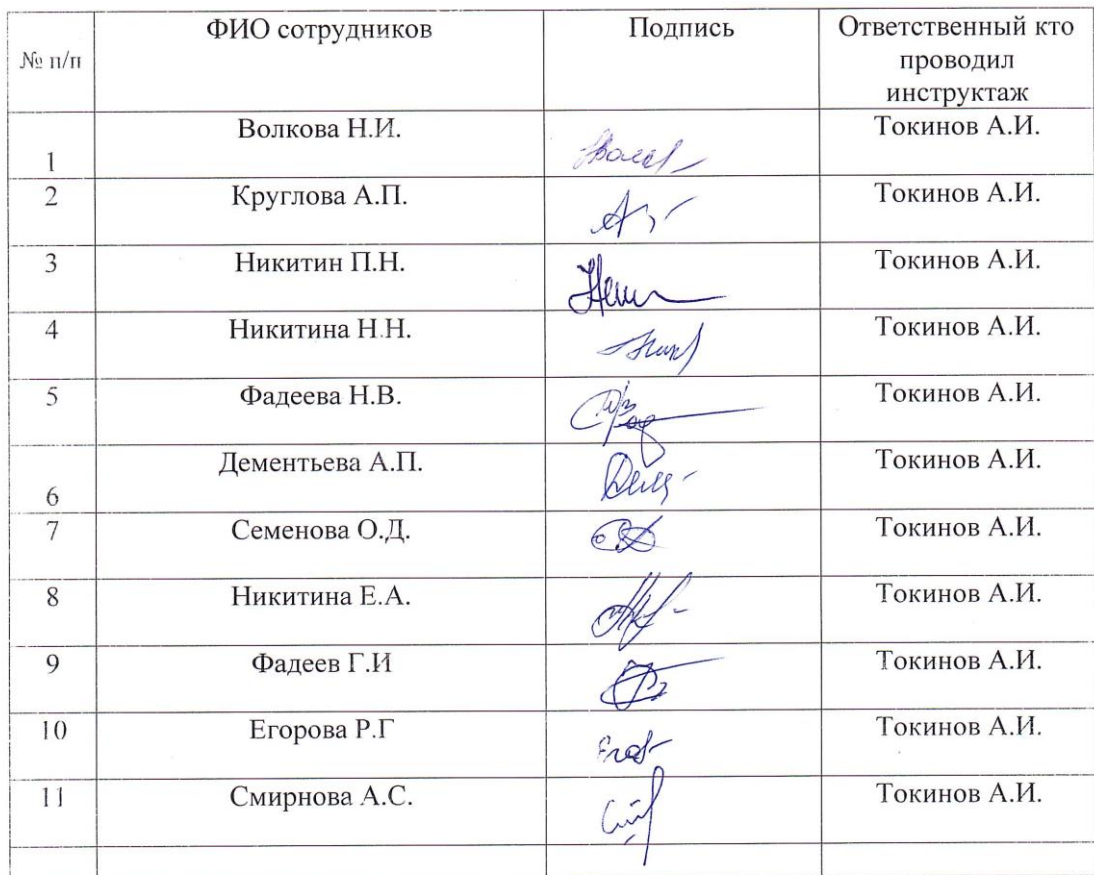 № п/п
ФИО сотрудников
Подпись
Ответственный кто
проводил
инструктаж
1 Волкова Н.И. Токинов А.И.
2 Круглова А.П. Токинов А.И.
3 Никитин П.Н. Токинов А.И.
4 Никитина Н.Н. Токинов А.И.
5 Фадеева Н.В. Токинов А.И.
6 Дементьева А.П. Токинов А.И.
7 Семенова О.Д. Токинов А.И.
8 Никитина Е.А. Токинов А.И.
9 Фадеев Г.И Токинов А.И.
10 Егорова Р.Г Токинов А.И.
11 Смирнова А.С. Токинов А.И.